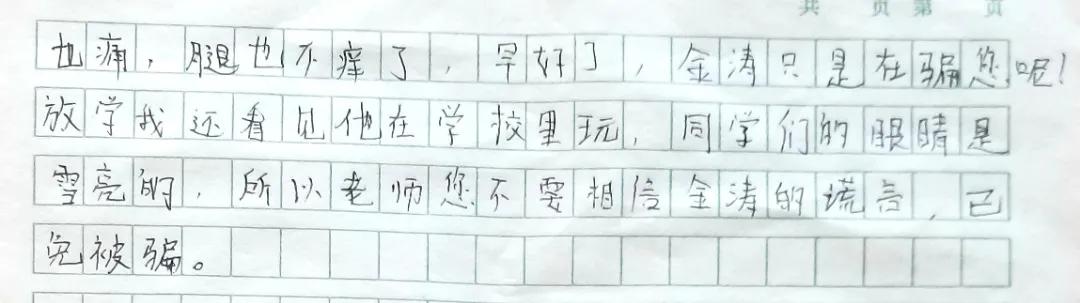 共 页 第 页
也痛，腿也不痒了，早好了，金涛只是在骗您呢！
放学我还看见他在学校里玩，同学们的眼睛是
雪亮的，所以老师您不要相信金涛的谎言，已
免被骗。